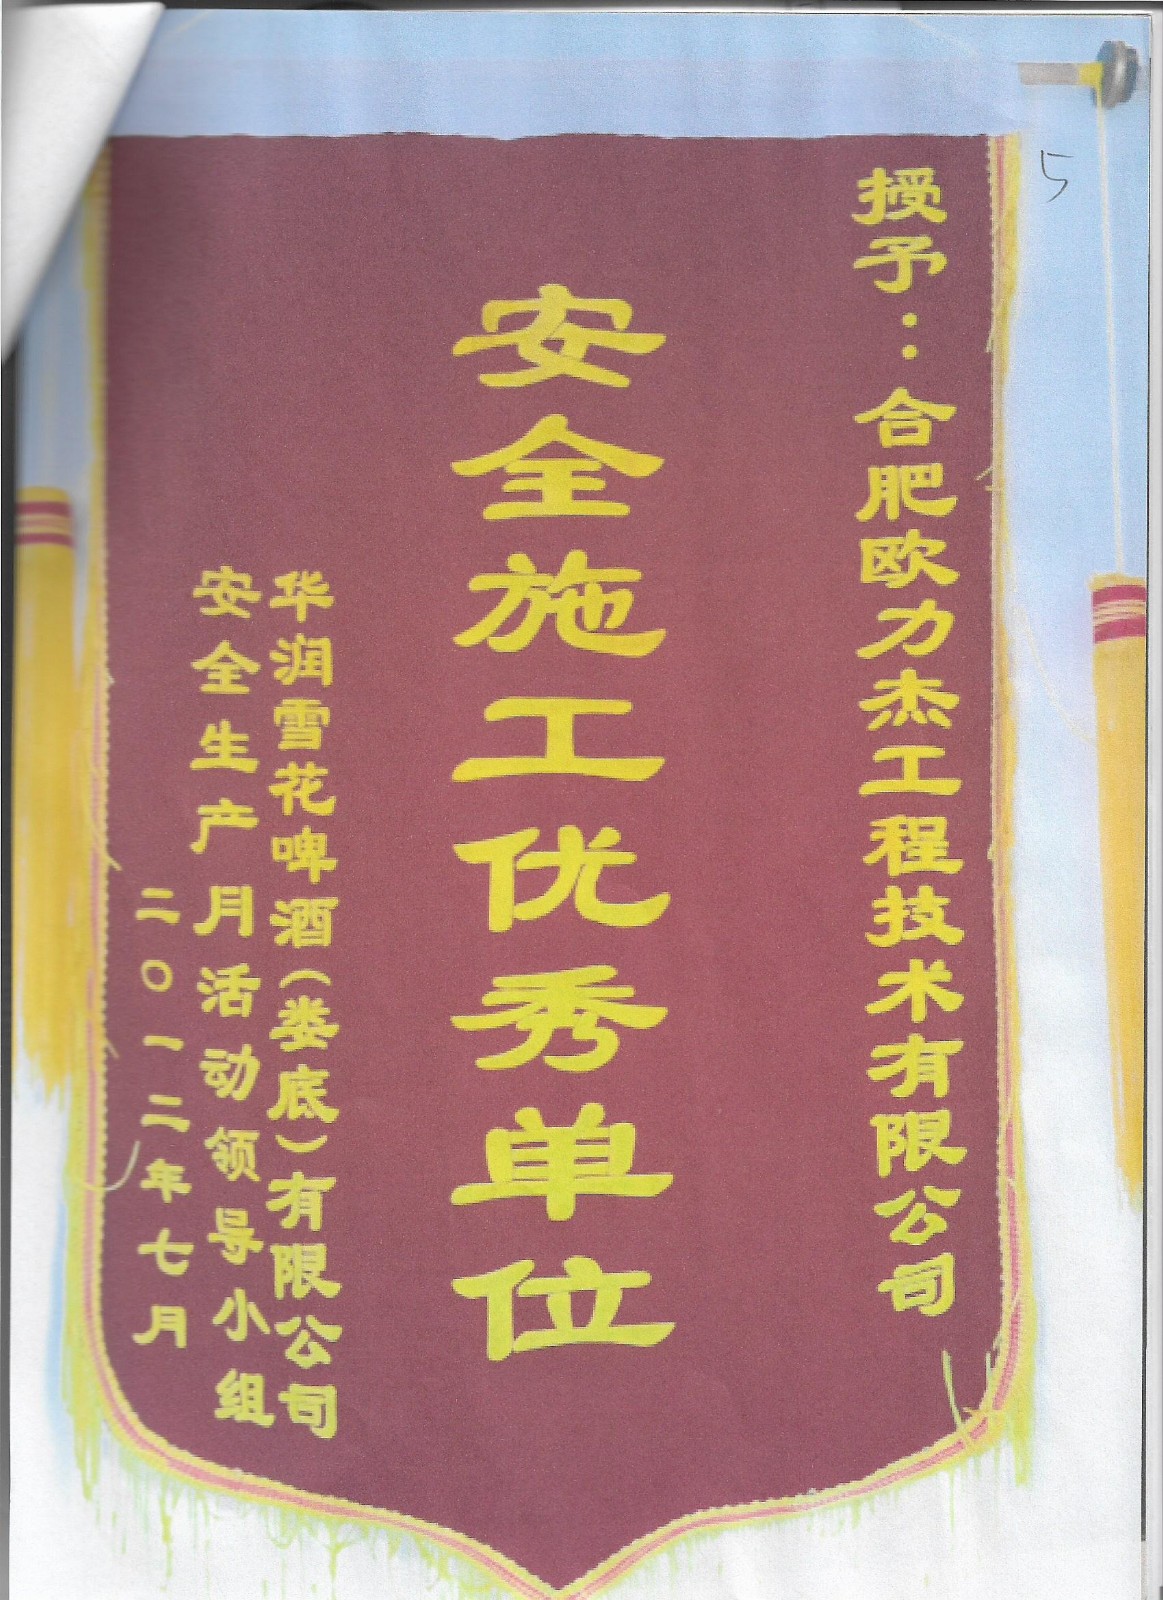 授予：合肥欧力杰工程技术有限公司
安全施工优秀单位
华润雪花啤酒（娄底）有限公司
安全生产月活动领导小组
二〇一二年七月
5